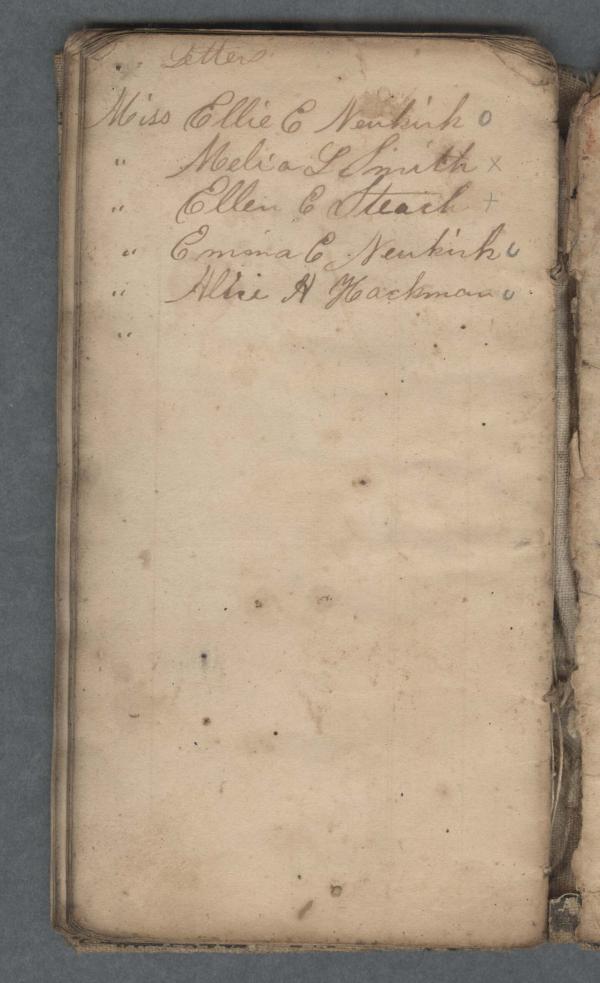 Letters
Miss Ellie E Newkirk o
" Melia L Smith x
" Ellen E Steach +
" Emma E Newkirk o
" Alice H Hackman o
"